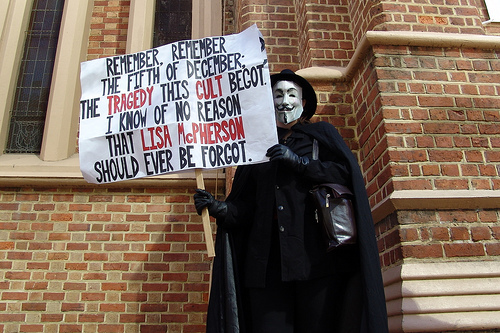 REMEMBER, REMEMBER
THE FIFTH OF DECEMBER:
THE TRAGEDY THIS CULT BEGOT.
I KNOW OF NO REASON
THAT LISA McPHERSON
SHOULD EVER BE FORGOT.